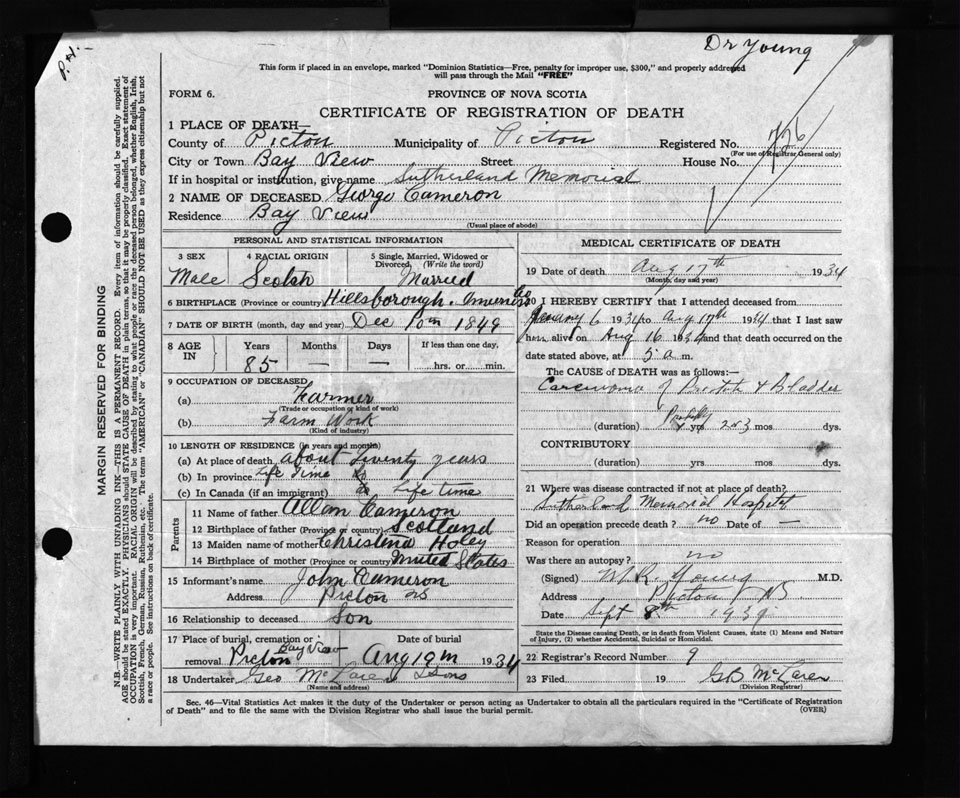 Dr Young
P.H.-
This form if placed in an envelope, marked "Dominion Statistics—Free, penalty for improper use, $300," and properly addressed
will pass through the Mail "FREE"
FORM 6.
PROVINCE OF NOVA SCOTIA
CERTIFICATE OF REGISTRATION OF DEATH
1 PLACE OF DEATH—
County of Pictou Municipality of Pictou Registered No. 726
(For use of Registrar General only)
City or Town Bay View Street House No.
If in hospital or institution, give name Sutherland Memorial
2 NAME OF DECEASED George Cameron
Residence Bay View
(Usual place of abode)
PERSONAL AND STATISTICAL INFORMATION
3 SEX 4 RACIAL ORIGIN 5 Single, Married, Widowed or
Divorced. (Write the word)
Male Scotch Married
6 BIRTHPLACE (Province or country) Hillsborough. Inverness Co
7 DATE OF BIRTH (month, day and year) Dec 10th 1849
8 AGE IN Years Months Days If less than one day,
85 — — ......hrs. or......min.
9 OCCUPATION OF DECEASED
(a) Farmer
(Trade or occupation or kind of work)
(b) Farm Work
(Kind of industry)
10 LENGTH OF RESIDENCE (in years and months)
(a) At place of death about Twenty years
(b) In province Life Time
(c) In Canada (if an immigrant) Life time
Parents
11 Name of father Allan Cameron
12 Birthplace of father (Province or country) Scotland
13 Maiden name of mother Christena Holey
14 Birthplace of mother (Province or country) United States
15 Informant's name John Cameron
Address Pictou NS
16 Relationship to deceased Son
17 Place of burial, cremation or Date of burial
Bay View
removal Pictou Aug 19th 1934
18 Undertaker Geo McLaren & Sons
(Name and address)
MEDICAL CERTIFICATE OF DEATH
19 Date of death Aug 17th 1934
(Month, day and year)
20 I HEREBY CERTIFY that I attended deceased from
January 6 1934 to Aug 17th 1934 that I last saw
him alive on Aug 16 1934 and that death occurred on the
date stated above, at 5 a m.
The CAUSE OF DEATH was as follows:
Carcinoma of Prostate & Bladder
(duration) Probably yrs 2 or 3 mos. dys.
CONTRIBUTORY
(duration) yrs. mos. dys.
21 Where was disease contracted if not at place of death?
Sutherland Memorial Hospital
Did an operation precede death? no Date of —
Reason for operation
Was there an autopsy? no
(Signed) W.R. Young M.D.
Address Pictou NS
Date Sept 8th 1934
State the Disease causing Death, or in death from Violent Causes, state (1) Means and Nature
of Injury, (2) whether Accidental, Suicidal or Homicidal.
22 Registrar's Record Number 9
23 Filed 19 GB McLaren
(Division Registrar)
Sec. 46—Vital Statistics Act makes it the duty of the Undertaker or person acting as Undertaker to obtain all the particulars required in the "Certificate of Registration
of Death" and to file the same with the Division Registrar who shall issue the burial permit. (OVER)
MARGIN RESERVED FOR BINDING
N.B.—WRITE PLAINLY WITH UNFADING INK—THIS IS A PERMANENT RECORD. Every item of information should be carefully supplied.
AGE should be stated EXACTLY. PHYSICIANS should STATE CAUSE OF DEATH in plain terms, so that it may be properly classified. Exact statement of
OCCUPATION is very important. RACIAL ORIGIN will be described by stating to what people or race the deceased person belonged, whether English, Irish,
Scottish, French, German, Russian, Ruthenian, etc. The terms "AMERICAN" or "CANADIAN" SHOULD NOT BE USED as they express citizenship but not
a race or people. See instructions on back of certificate.